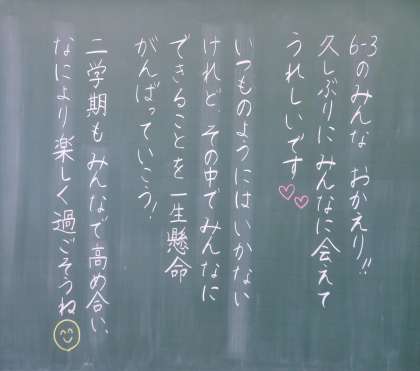 6-3のみんな おかえり!!
久しぶりにみんなに会えて
うれしいです
いつものようにはいかない
けれど、その中でみんなに
できることを一生懸命
がんばっていこう!
二学期もみんなで高め合い、
なにより楽しく過ごそうね